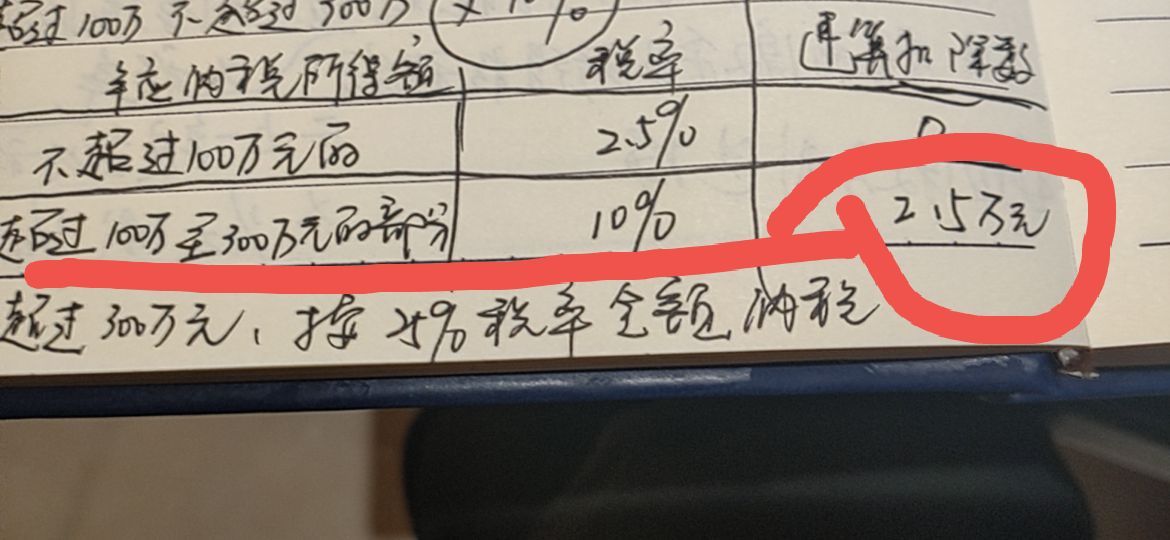 超过100万 不超过300万 × 10%
年应纳税所得额 税率 速算扣除数
不超过100万元的 2.5% 0
超过100万至300万元的部分 10% 2.5万元
超过300万元,按25%税率全额纳税